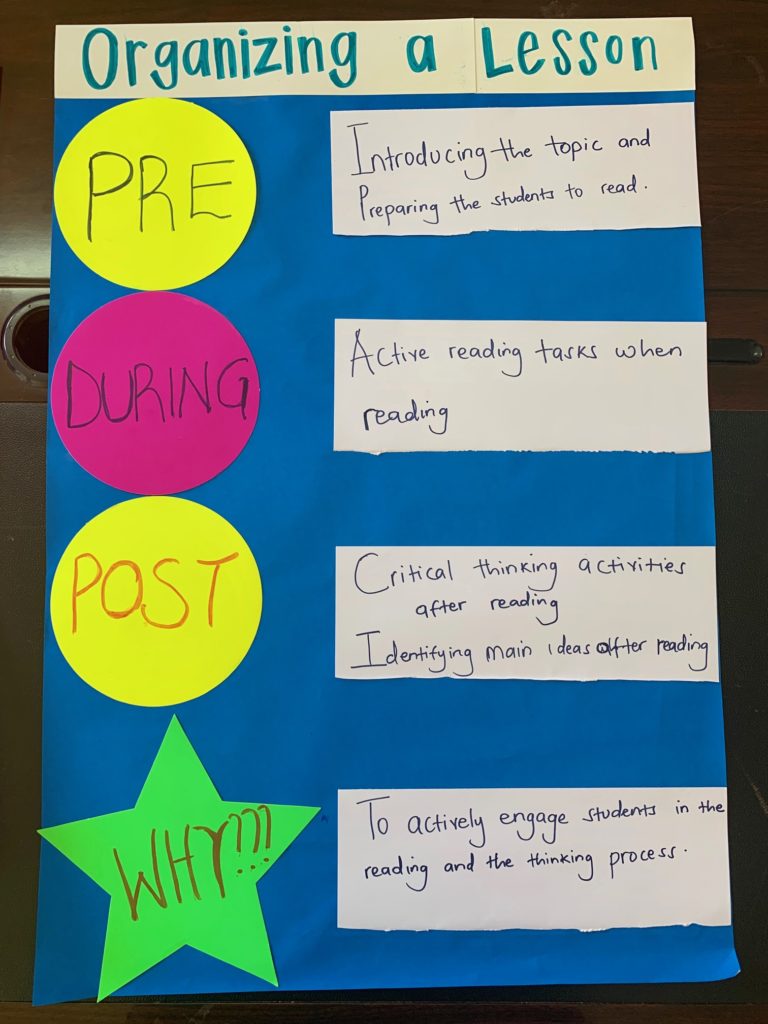 Organizing a Lesson
PRE
Introducing the topic and
Preparing the students to read.
DURING
Active reading tasks when
reading
POST
Critical thinking activities
after reading
Identifying main ideas after reading
WHY???
To actively engage students in the
reading and the thinking process.